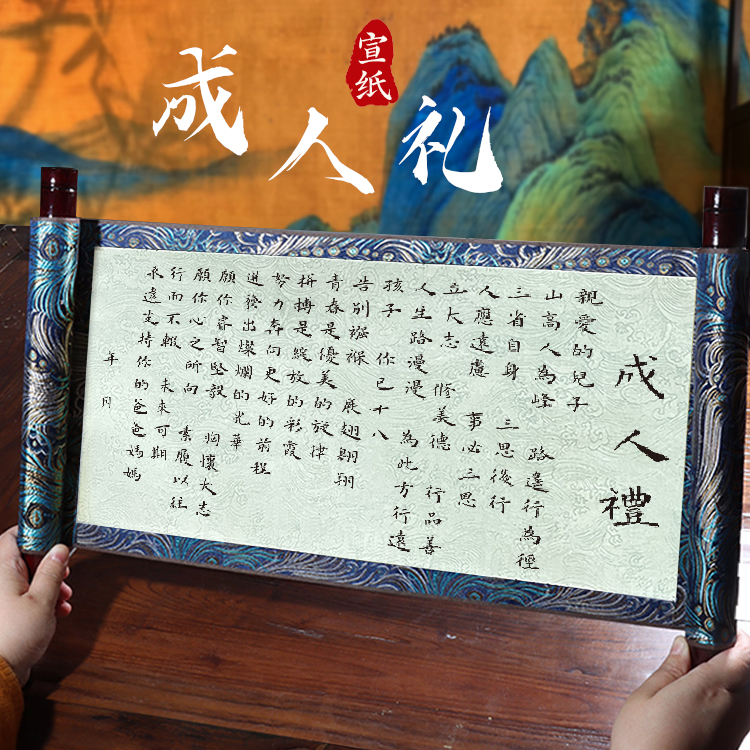 宣纸
成人礼
成人禮
親愛的兒子
山高人為峰 路遙行為徑
三省自身 三思後行
人應遠慮 事必三思
立大志 修美德 行品善
人生路漫漫 為此方行遠
孩子 你已十八
告別襁褓 展翅翱翔
青春是優美的旋律
拼搏是綻放的彩霞
努力奔向更好的前程
迸發出燦爛的光華
願你睿智堅毅 胸懷大志
願你心之所向 素履以往
行而不輟 未來可期
永遠支持你的爸爸媽媽
年 月